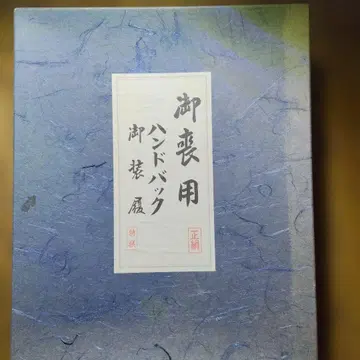 御喪用
ハンドバック
御装履
正絹